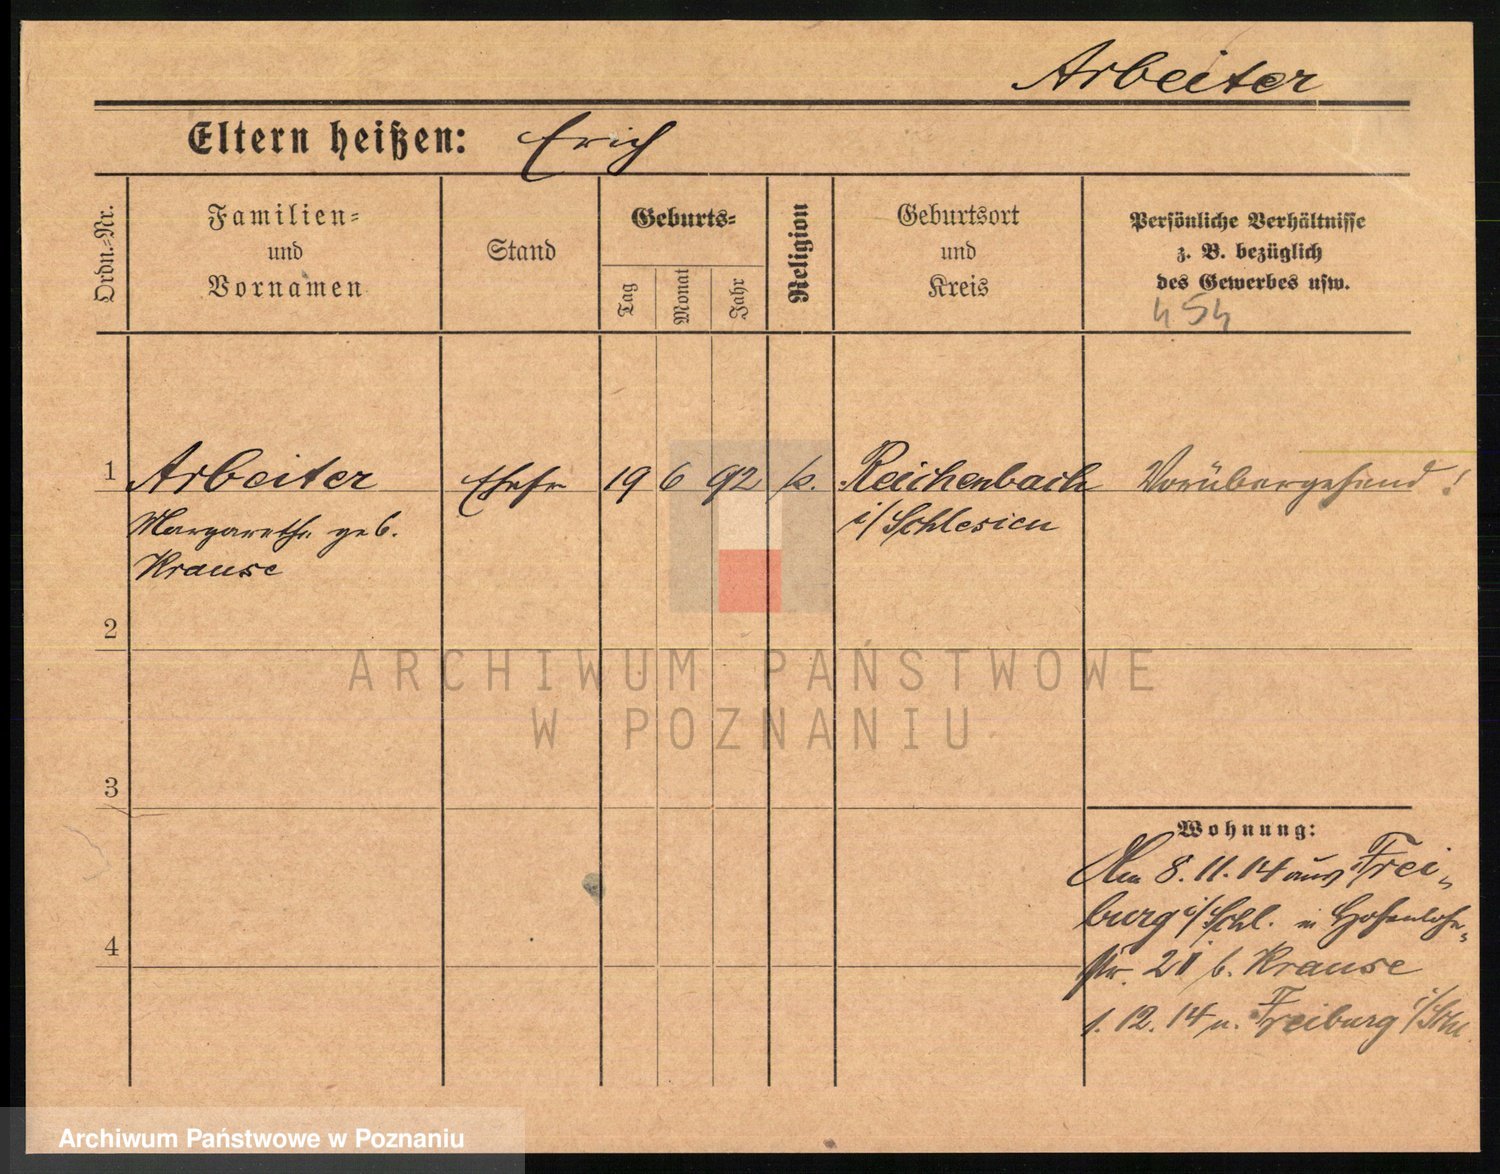 Arbeiter
Eltern heißen: Erich
Ordn.=Nr.
Familien=
und
Vornamen
Stand
Geburts=
Tag
Monat
Jahr
Religion
Geburtsort
und
Kreis
Persönliche Verhältnisse
z. B. bezüglich
des Gewerbes usw.
454
1 Arbeiter Ehefr 19 6 92 k. Reichenbach Vorübergehend!
Margarethe geb. i/Schlesien
Krause
2
ARCHIWUM PAŃSTWOWE
W POZNANIU
3
Wohnung:
Am 8.11.14 aus Frei-
burg i/Schl. in Hohenlohe-
4
str. 21 b. Krause
1.12.14 n. Freiburg i/Schl.
Archiwum Państwowe w Poznaniu